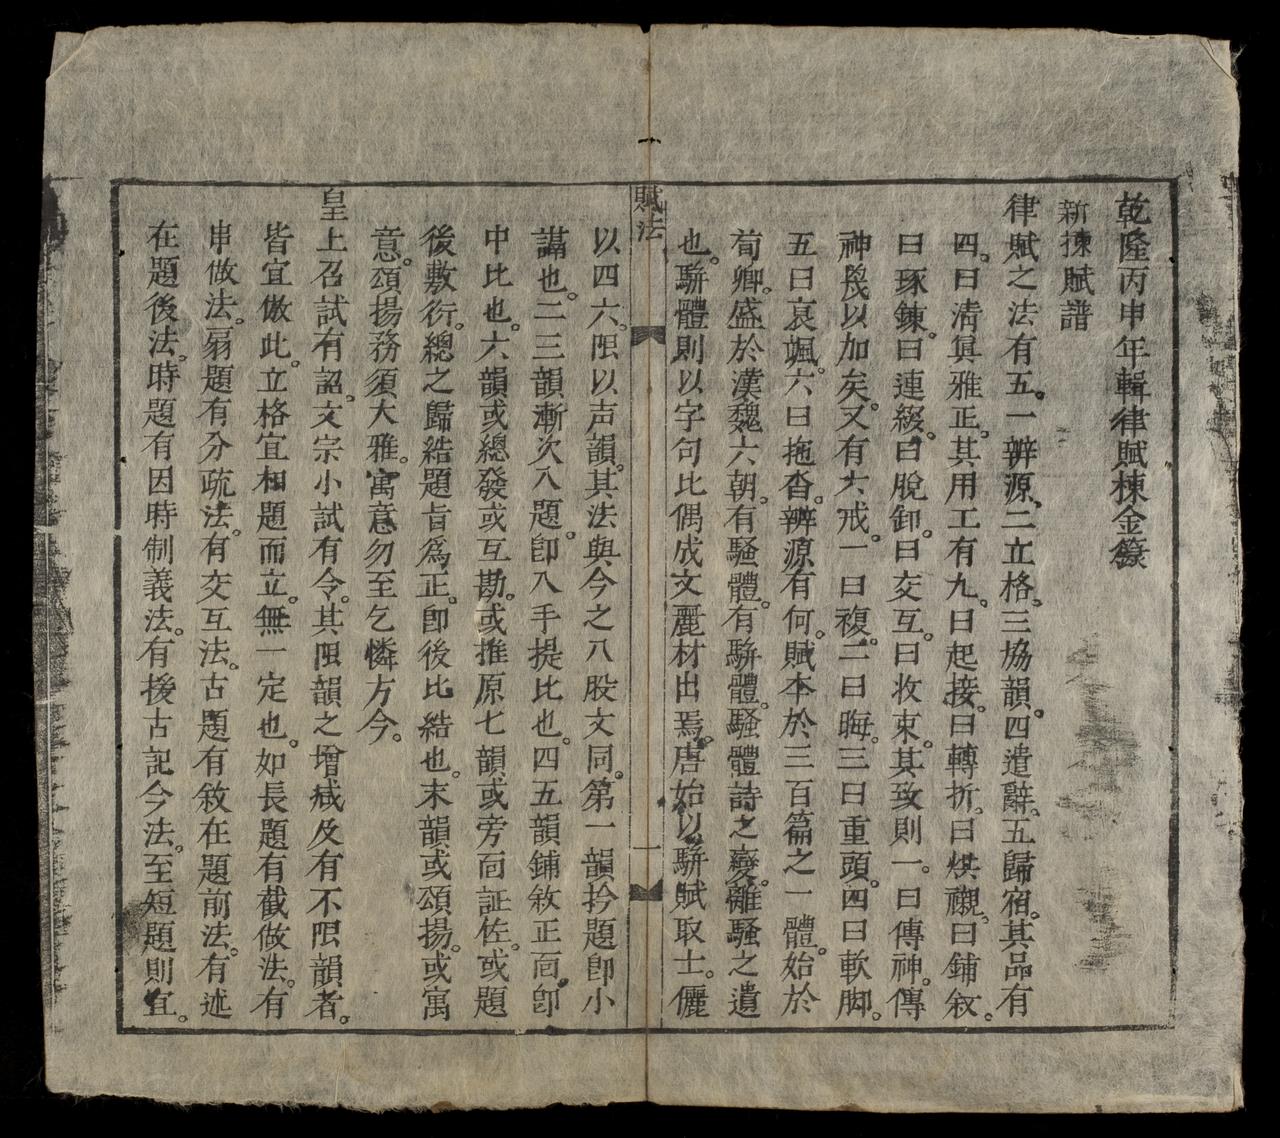 乾隆丙申年輯律賦楝金籙
新揀賦譜
律賦之法有五。一辨源、二立格。三協韻。四遣辭。五歸宿。其品有
四。曰淸眞雅正。其用工有九。曰起接。曰轉折。曰烘襯。曰鋪敘。
曰琢鍊。曰連綴。曰脫卸。曰交互。曰收束。其致則一。曰傳神。傳
神幾以加矣。又有六戒。一曰複。二曰晦。三曰重頭。四曰軟脚。
五曰哀颯。六曰拖沓。辨源有何。賦本於三百篇之一體。始於
荀卿。盛於漢魏六朝。有騷體。有騈體。騷體詩之變。離騷之遺
也。騈體則以字句比偶成文麗材出焉。唐始以騈賦取士。儷
賦法
一
以四六。限以声韻。其法與今之八股文同。第一韻拎題卽小
講也。二三韻漸次入題。卽入手提比也。四五韻鋪敘正面。卽
中比也。六韻或總發或互勘。或推原七韻或旁面証佐。或題
後敷衍。總之歸結題旨爲正。卽後比結也。末韻或頌揚。或寓
意。頌揚務須大雅。寓意勿至乞憐方今。
皇上召試有詔。文宗小試有令。其限韻之增减及有不限韻者。
皆宜倣此。立格宜相題而立。無一定也。如長題有截做法。有
串做法。扇題有分疏法。有交互法。古題有敘在題前法。有述
在題後法。時題有因時制義法。有援古記今法。至短題則宜。